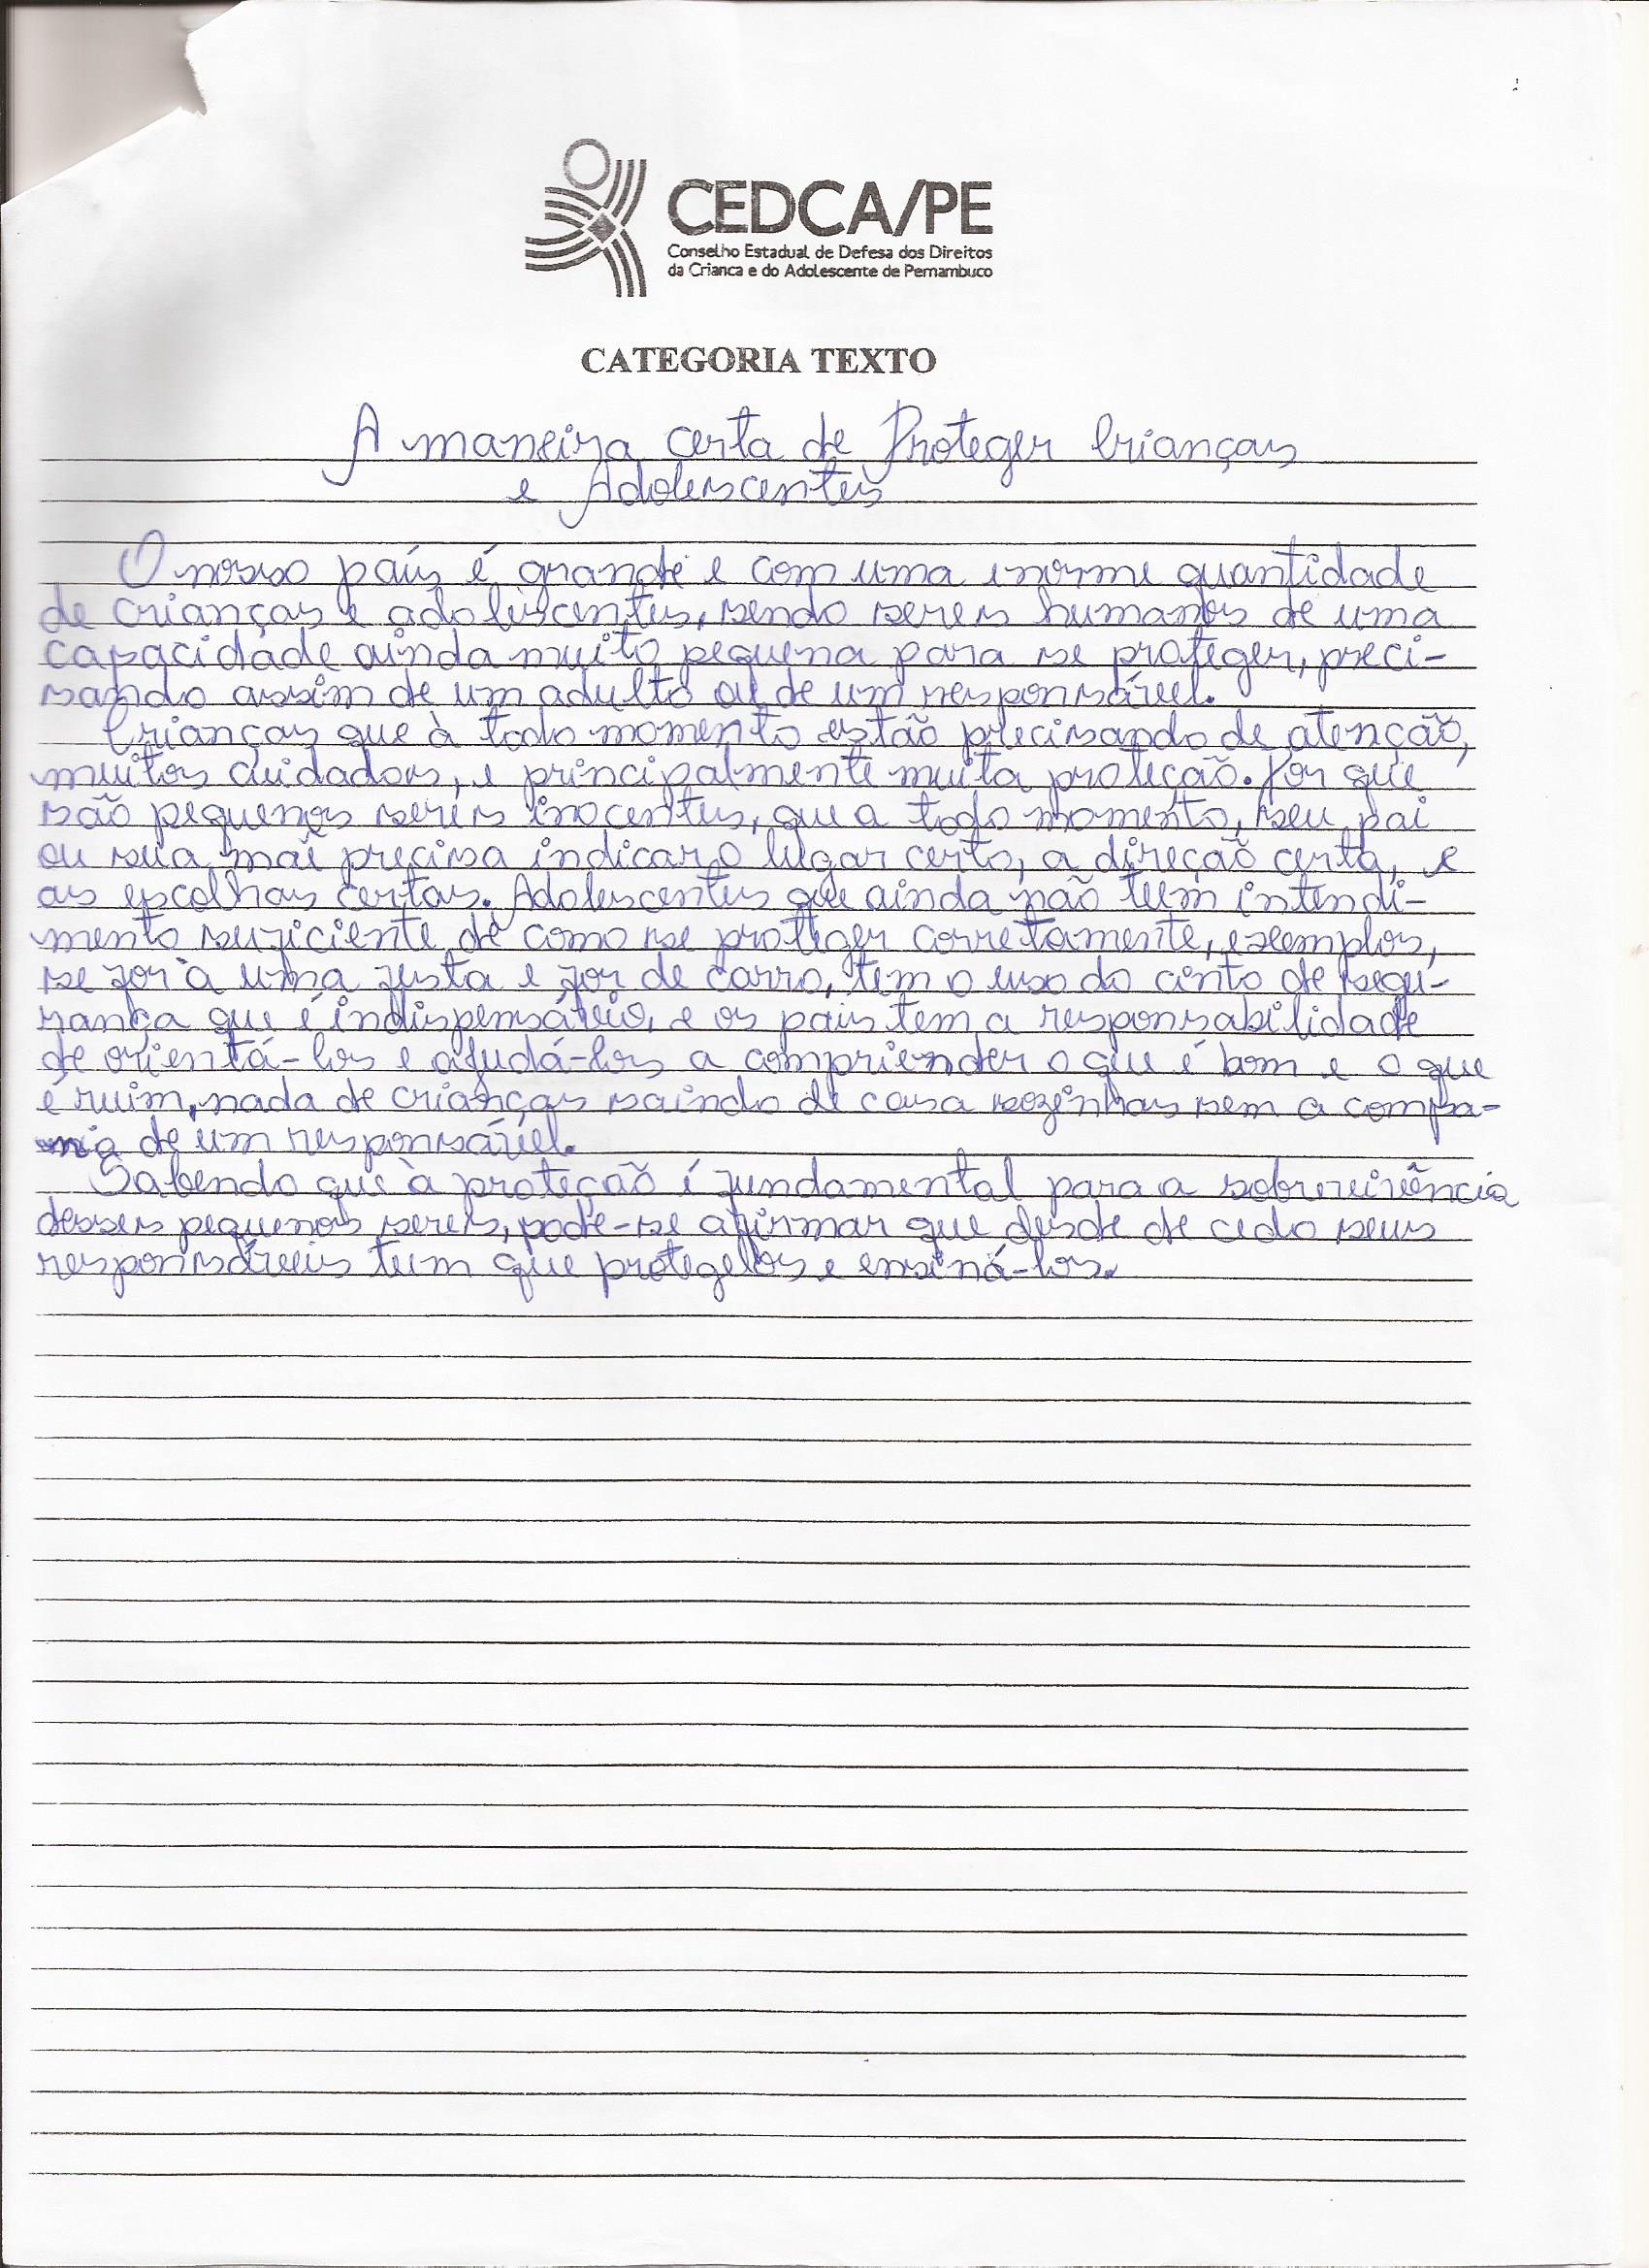 CEDCA/PE
Conselho Estadual de Defesa dos Direitos
da Crianca e do Adolescente de Pernambuco
CATEGORIA TEXTO
A maneira certa de Proteger Crianças
e Adolescentes
O nosso país é grande e com uma enorme quantidade
de crianças e adolescentes, sendo seres humanos de uma
capacidade ainda muito pequena para se proteger, preci-
sando assim de um adulto ou de um responsável.
Crianças que à todo momento estão precisando de atenção,
muitos cuidados, e principalmente muita proteção. Por que
são pequenos seres inocentes, que a todo momento, seu pai
ou sua mãe precisa indicar o lugar certo, a direção certa, e
as escolhas certas. Adolescentes que ainda não tem intendi-
mento suficiente de como se proteger corretamente, exemplos,
se for à uma festa e for de carro, tem o uso do cinto de segu-
rança que é indispensável, e os pais tem a responsabilidade
de orientá-los e ajudá-los a compriender o que é bom e o que
é ruim, nada de crianças saindo de casa sozinhas sem a compa-
nia de um responsável.
Sabendo que à proteção é fundamental para a sobrevivência
desses pequenos seres, pode-se afirmar que desde de cedo seus
responsáveis tem que protegelos e ensiná-los.